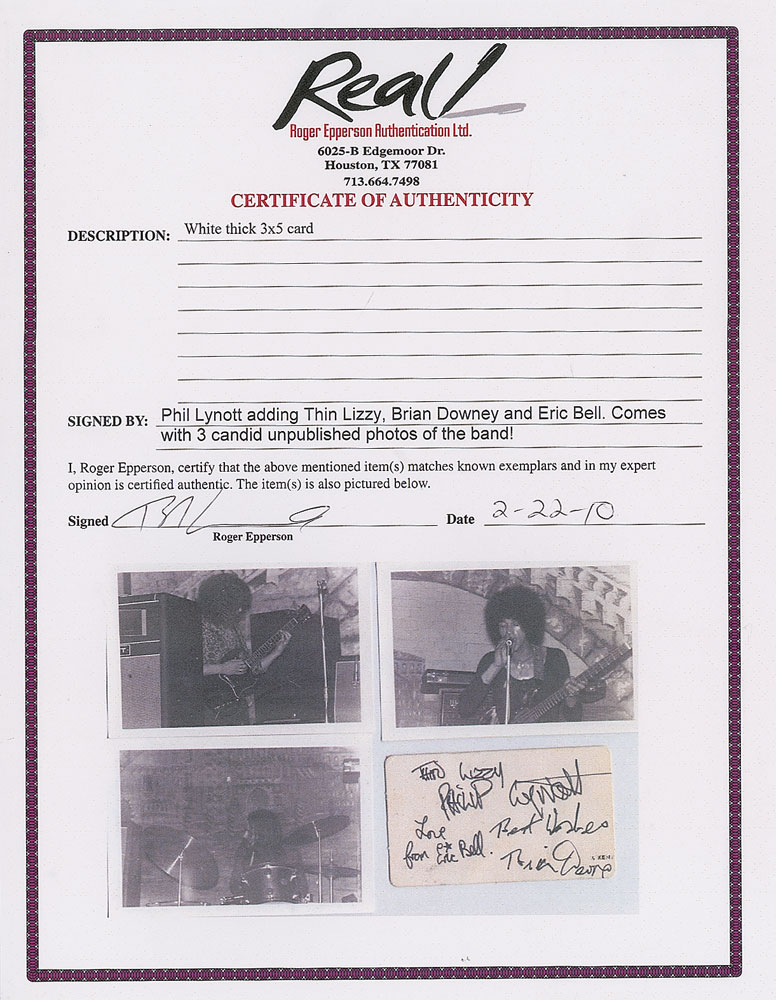 Real!
Roger Epperson Authentication Ltd.
6025-B Edgemoor Dr.
Houston, TX 77081
713.664.7498
CERTIFICATE OF AUTHENTICITY
DESCRIPTION: White thick 3x5 card
SIGNED BY: Phil Lynott adding Thin Lizzy, Brian Downey and Eric Bell. Comes
with 3 candid unpublished photos of the band!
I, Roger Epperson, certify that the above mentioned item(s) matches known exemplars and in my expert
opinion is certified authentic. The item(s) is also pictured below.
Signed Date 2-22-10
Roger Epperson
Thin Lizzy
Philip Lynott
Love
from Eric Bell.
Best Wishes
Brian Downey